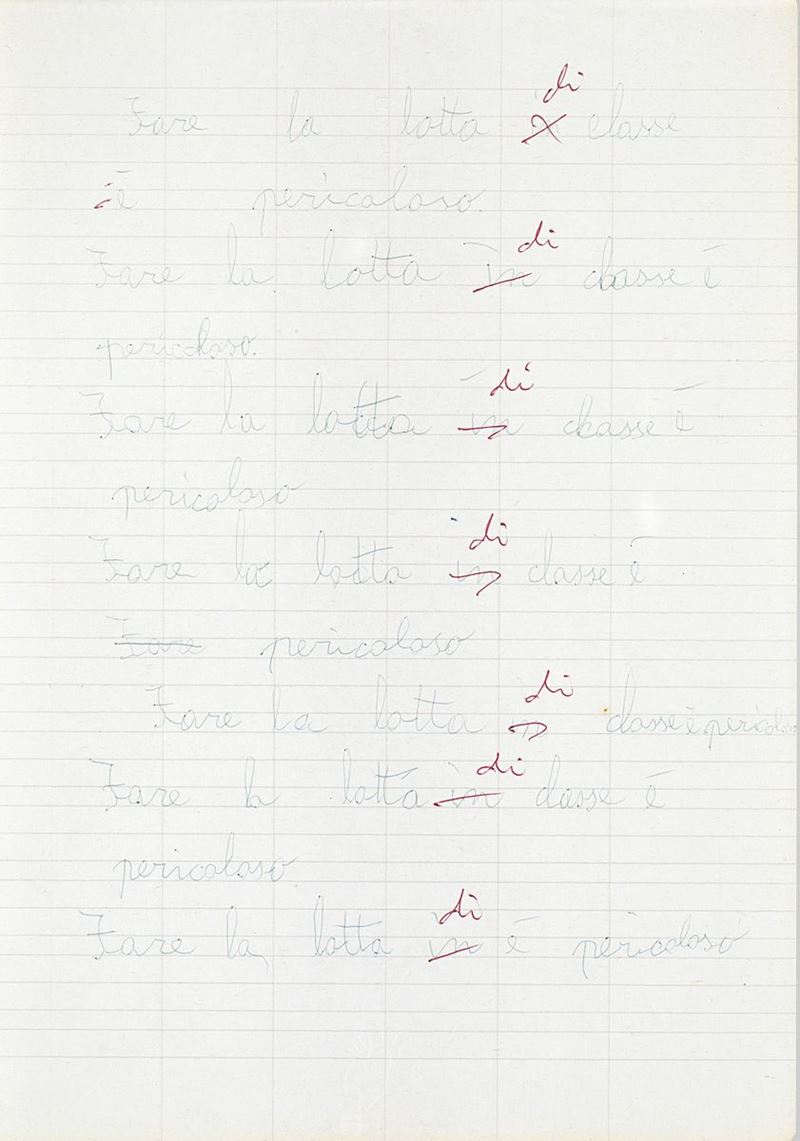 di
Fare la lotta X classe
è pericoloso.
di
Fare la lotta in classe è
pericoloso.
di
Fare la lotta in classe è
pericoloso
di
Fare la lotta in classe è
Fare pericoloso
di
Fare la lotta in classe è pericoloso
di
Fare la lotta in classe è
pericoloso
di
Fare la lotta in è pericoloso